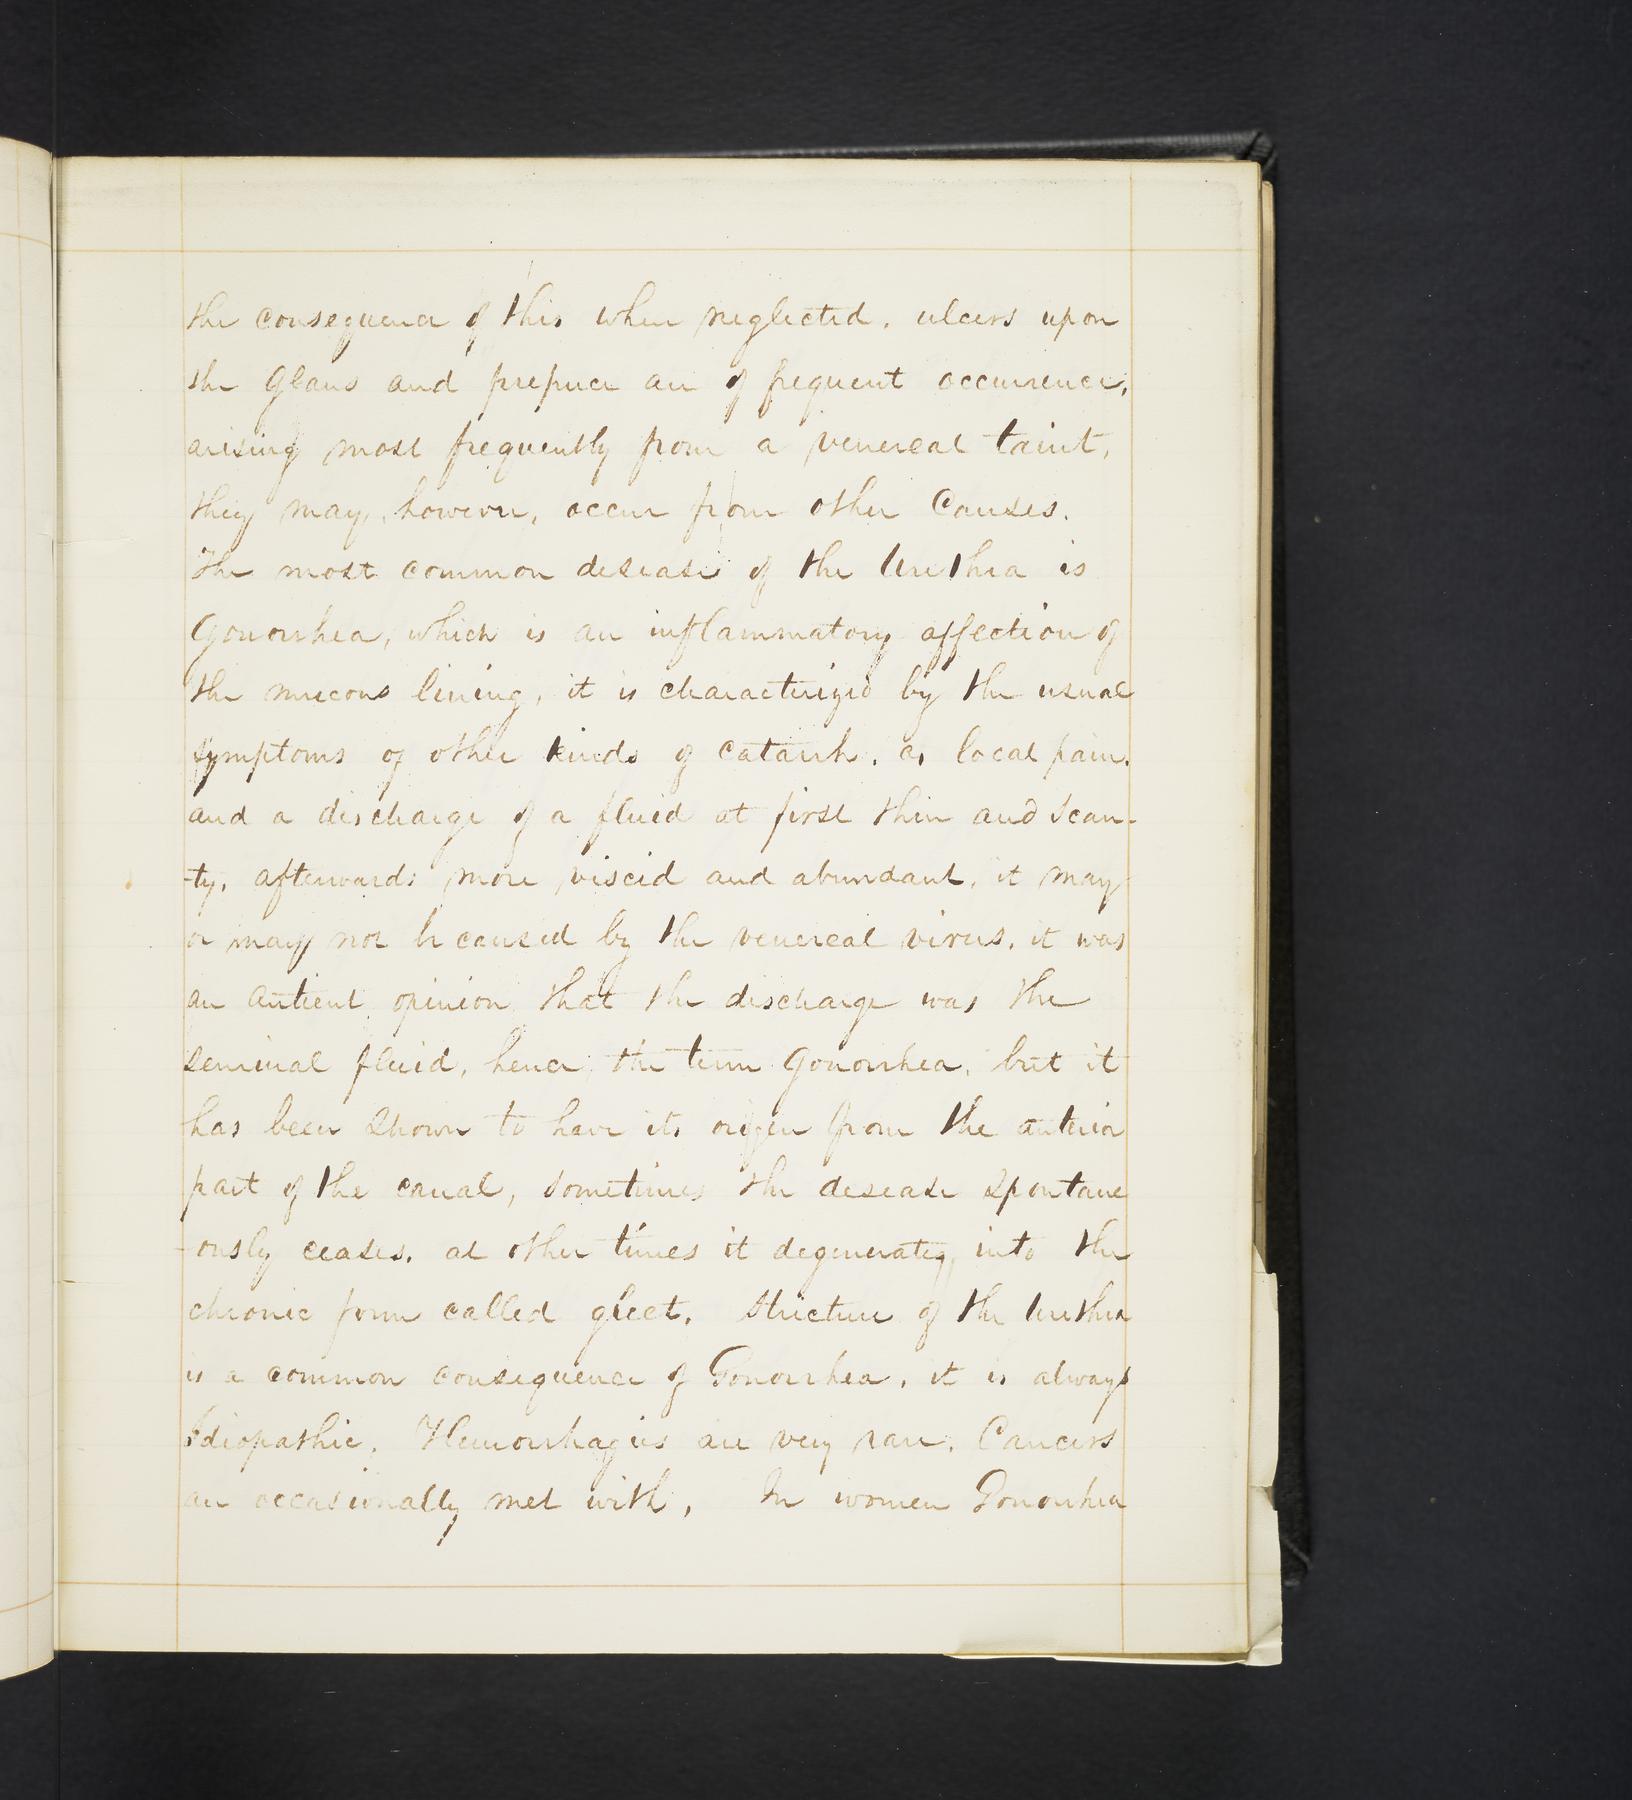 the consequence of this when neglected. ulcers upon
the Glans and prepuce are of frequent occurrence,
arising most frequently from a venereal taint,
they may, however, occur from other Causes.
The most common disease of the Urethra is
Gonorrhea, which is an inflammatory affection of
the mucous lining, it is characterized by the usual
symptoms of other kinds of catarrh. as local pain.
and a discharge of a fluid at first thin and scan-
-ty, afterwards more viscid and abundant, it may
or may not be caused by the venereal virus. it was
an antient opinion that the discharge was the
seminal fluid, hence the term Gonorrhea, but it
has been shown to have its origen from the anterior
part of the canal, sometimes the desease spontane
-ously ceases. at other times it degenerates into the
chronic form called gleet. Stricture of the Urethra
is a common consequence of Gonorrhea, it is always
Idiopathic. Hemorrhagies are very rare. Cancers
are occasionally met with, In women Gonorrhea